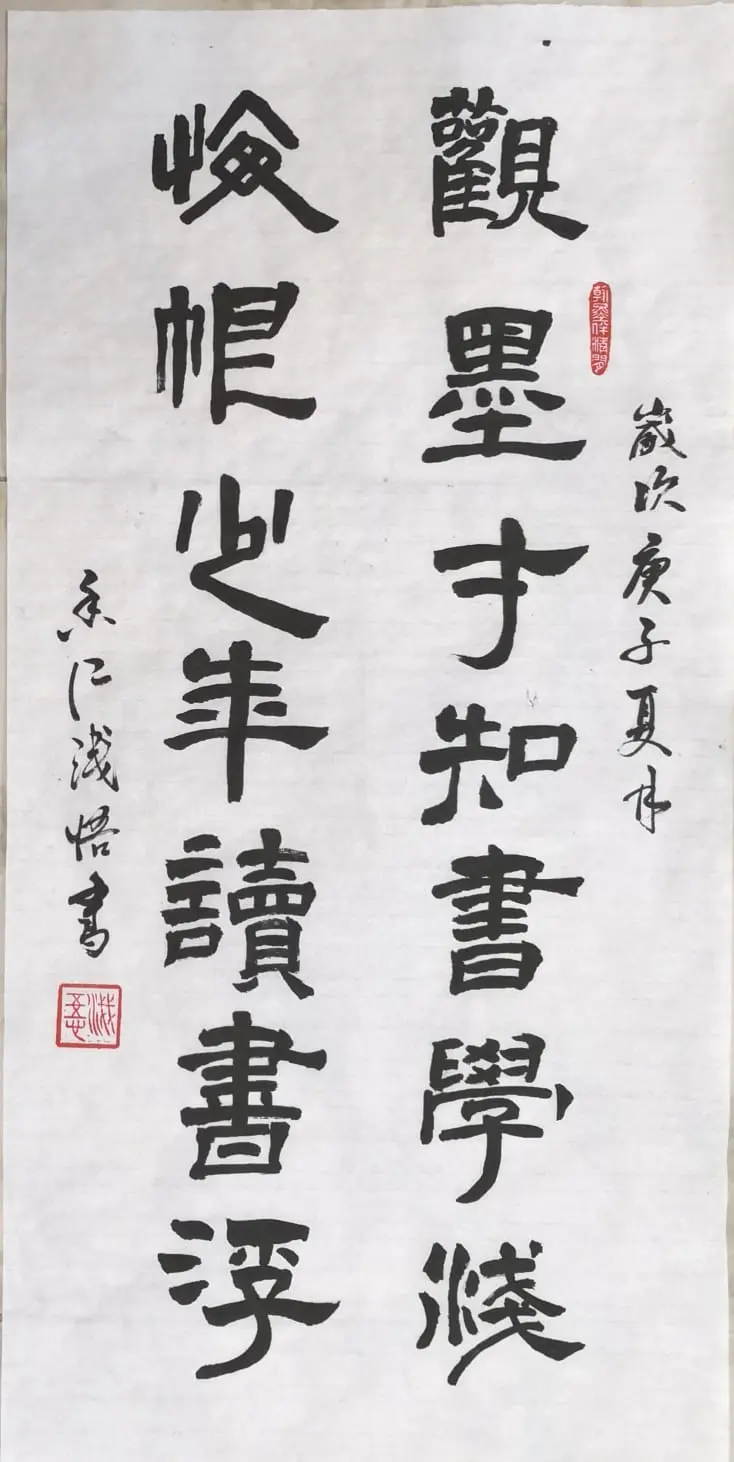 歲次庚子夏月
觀墨才知書學淺
悔恨少年讀書浮
淺悟書